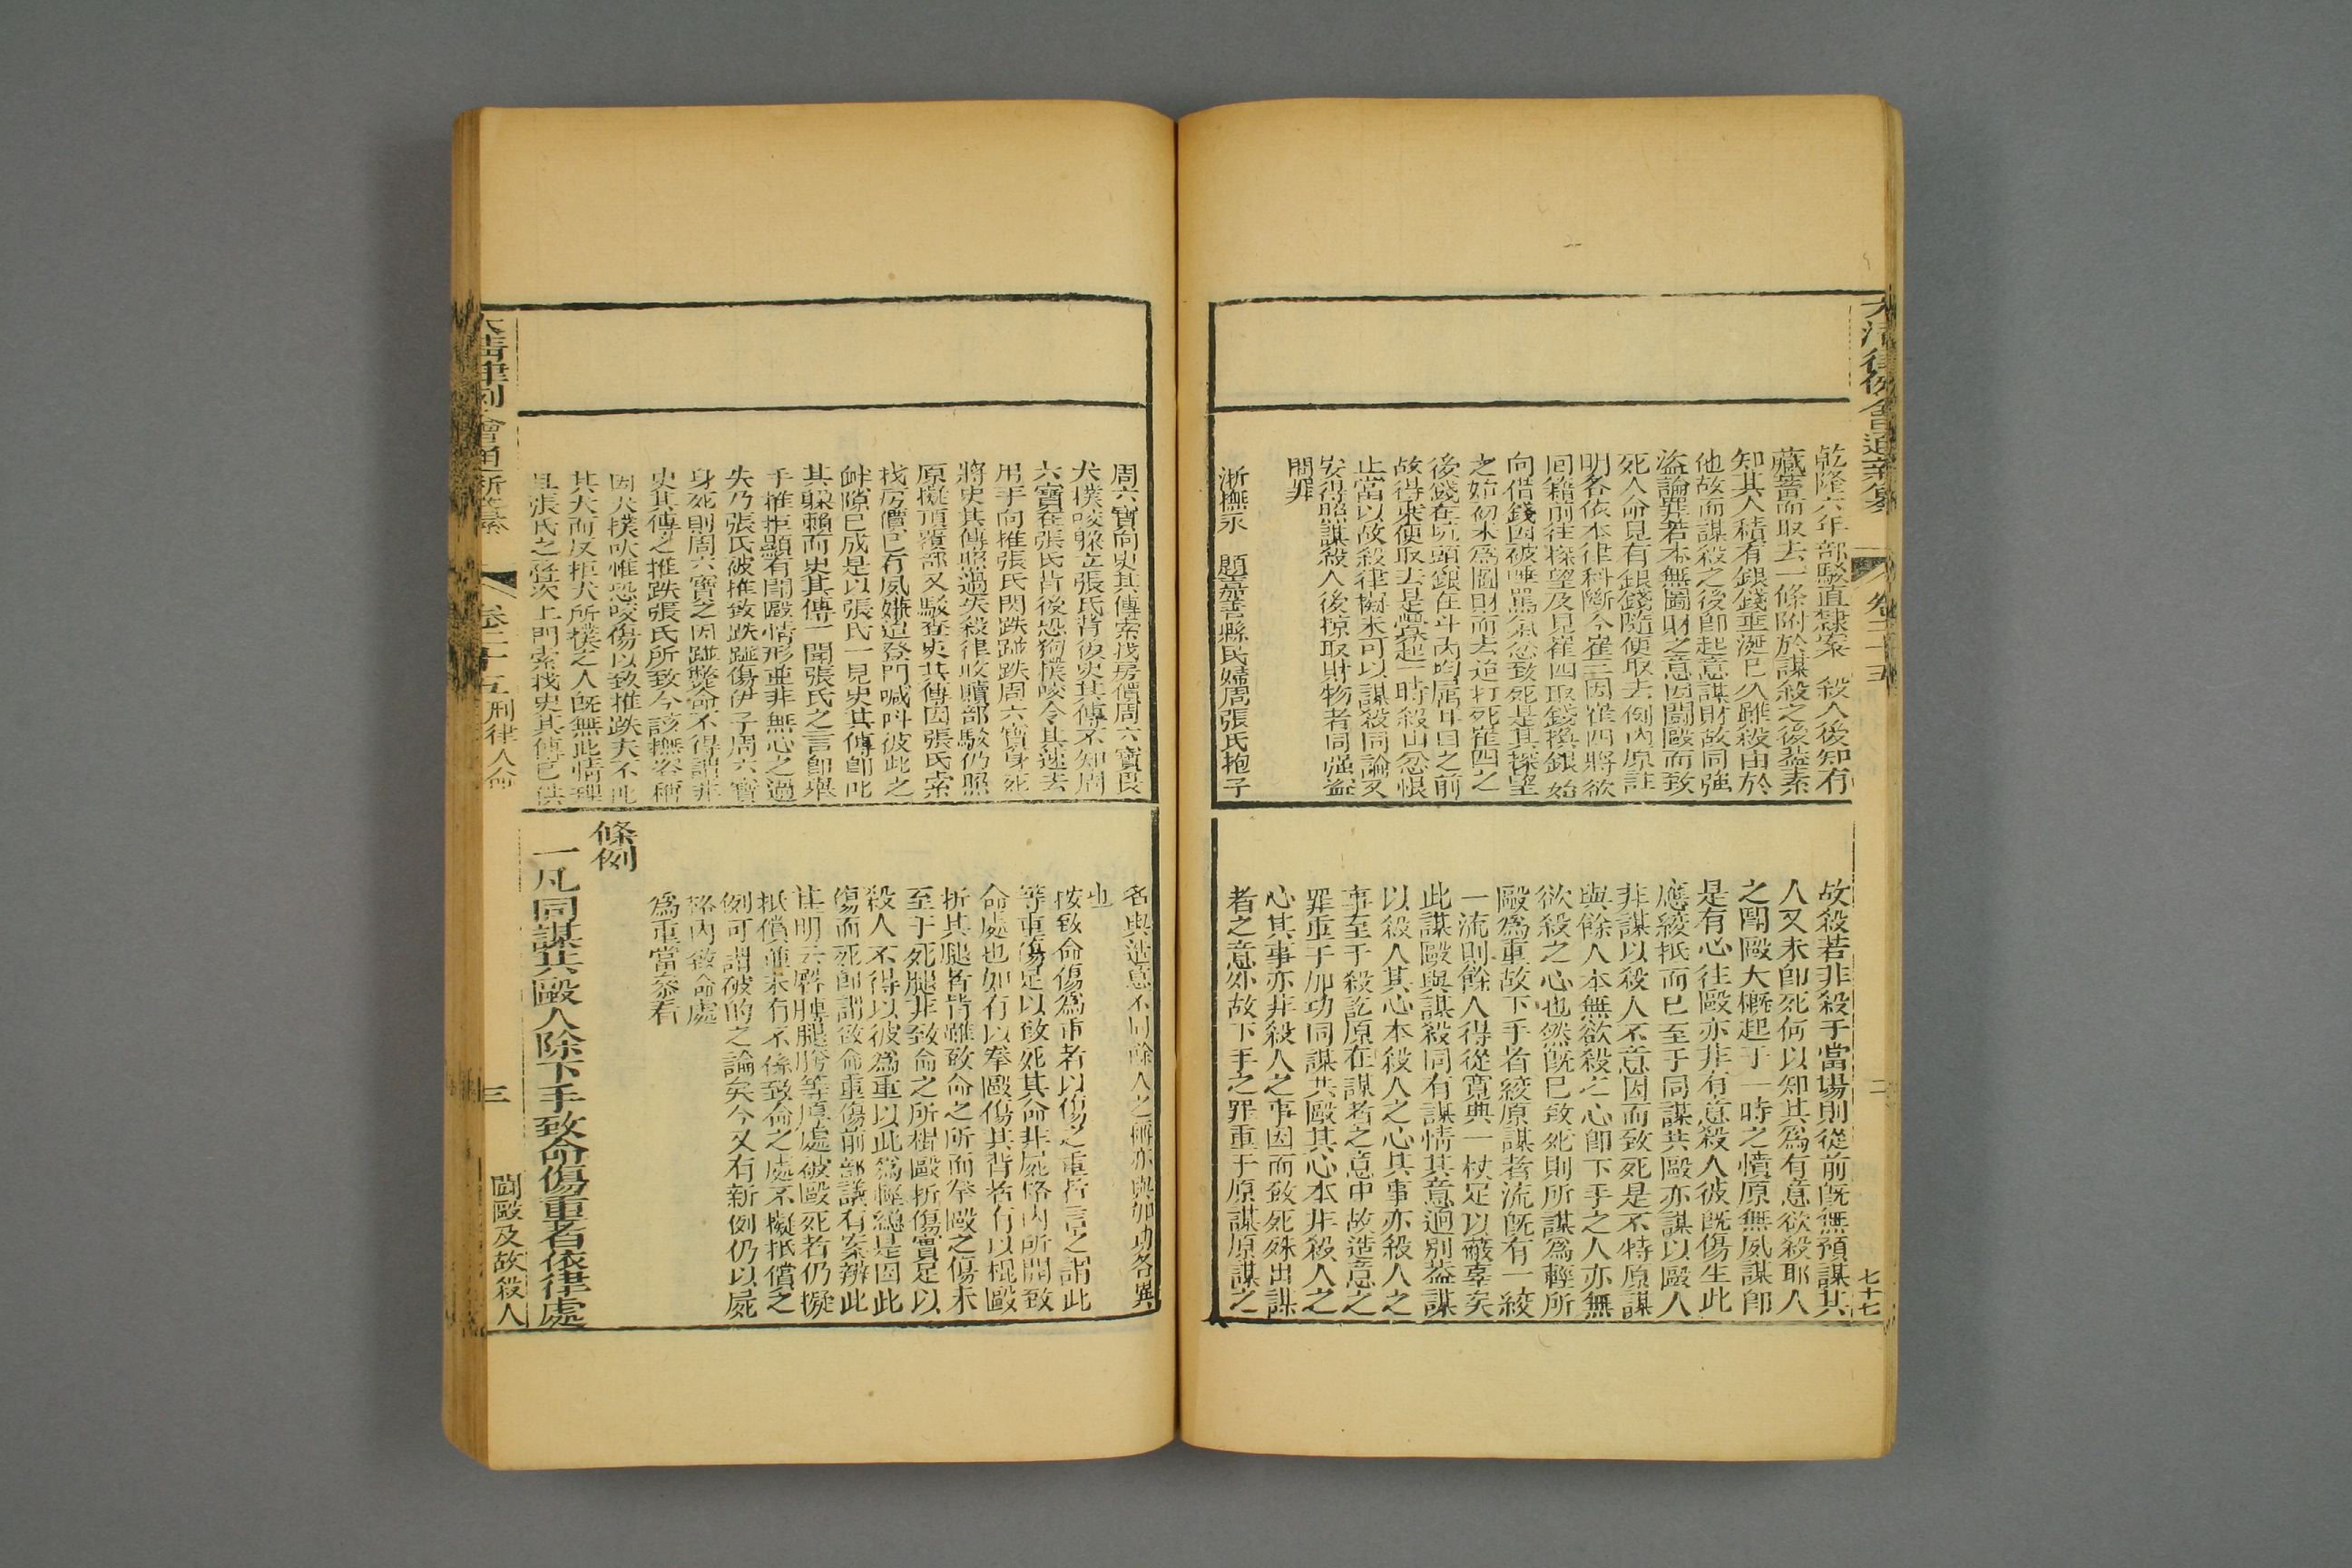 大清律例會通新纂
卷二十五
二
七十七
乾隆六年部駁直隸案 殺人後知有
藏蓄而取去一條附於謀殺之後蓋素
知其人積有銀錢垂涎已久雖殺由於
他故而謀殺之後卽起意謀財故同強
盜論罪若本無圖財之意因鬪毆而致
死人命見有銀錢隨便取去例內原註
明各依本律科斷今崔三因崔四將欲
回籍前往探望及見崔四取錢換銀始
向借錢因被唾罵氣忿致死是其探望
之始初未爲圖財而去迨打死崔四之
後錢在炕頭銀在斗內均屬耳目之前
故得乘便取去是釁起一時殺由忿恨
止當以故殺律擬未可以謀殺同論又
安得照謀殺人後掠取財物者同强盜
問罪
浙撫永 題嘉善縣民婦周張氏抱子
故殺若非殺于當場則從前旣無預謀其
人又未卽死何以知其爲有意欲殺耶人
之鬪毆大槪起于一時之憤原無夙謀卽
是有心往毆亦非有意殺人彼旣傷生此
應絞抵而已至于同謀共毆亦謀以毆人
非謀以殺人不意因而致死是不特原謀
與餘人本無欲殺之心卽下手之人亦無
欲殺之心也然旣已致死則所謀爲輕所
毆爲重故下手者絞原謀者流旣有一絞
一流則餘人得從寬典一杖足以蔽辜矣
此謀毆與謀殺同有謀情其意迥別蓋謀
以殺人其心本殺人之心其事亦殺人之
事至于殺訖原在謀者之意中故造意之
罪重于加功同謀共毆其心本非殺人之
心其事亦非殺人之事因而致死殊出謀
者之意外故下手之罪重于原謀原謀之
周六寶向史其傳索找房價周六寶畏
犬撲咬躱立張氏背後史其傳不知周
六寶在張氏背後恐狗撲咬令其速去
用手向推張氏閃跌碰跌周六寶身死
將史其傳照過失殺律收贖部駁仍照
原擬頂覆部又駁查史其傳因張氏索
找房價已有夙嫌迨登門喊叫彼此之
釁隙已成是以張氏一見史其傳卽叱
其躱賴而史其傳一聞張氏之言卽舉
手推拒顯有鬪毆情形並非無心之過
失乃張氏被推致跌碰傷伊子周六寶
身死則周六寶之因碰斃命不得謂非
史其傳之推跌張氏所致今該撫咨稱
因犬撲吠惟恐咬傷以致推跌夫不叱
其犬而反拒犬所撲之人旣無此情理
且張氏之登次上門索找史其傳已供
名與造意不同餘人之稱亦與加功各異
也
按致命傷爲重者以傷之重者言之謂此
等重傷足以致死其命非屍格內所開致
命處也如有以拳毆傷其背者有以棍毆
折其腿者背雖致命之所而拳毆之傷未
至于死腿非致命之所棍毆折傷實足以
殺人不得以彼爲重以此爲輕總是因此
傷而死卽謂致命重傷前部議有案辨此
甚明云臀腫腿胯等原處被毆死者仍擬
抵償並未有不係致命之處不擬抵償之
例可謂破的之論矣今又有新例仍以屍
格內致命處
爲重當叅看
條例
一凡同謀共毆人除下手致命傷重者依律處
大清律例會通新纂
卷二十五刑律人命
三
鬪毆及故殺人